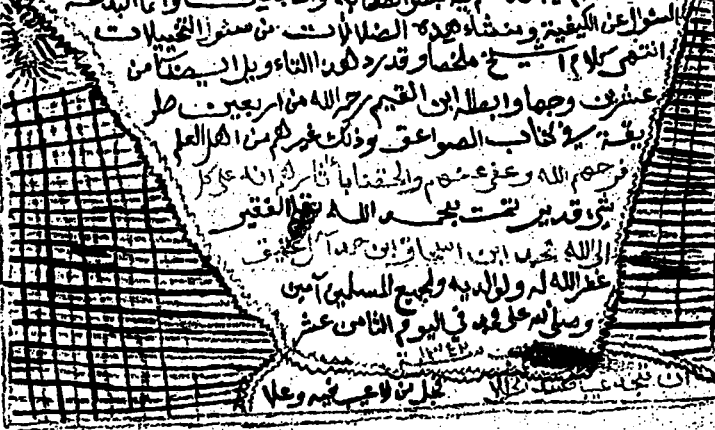 السؤال عن الكيفية ومنشاء هذه الضلالات من سوء التخيلات
انتهى كلام الشيخ ملخصا وقد رد هذا التاويل ايضا من
عشرين وجها وابطله ابن القيم رحمه الله من اربعين طر
يقة في كتاب الصواعق وذلك غيرهم من اهل العلم
فرحمهم الله وعفى عنهم والحقنا بآثارهم انه على كل
شي قدير تمت بحمد الله بقلم الفقير
الى الله محمد ابن
غفر الله له ولوالديه ولجميع المسلمين آمين
وصلى الله على محمد في اليوم الثامن عشر
سنة ١٣٤٢
ان تجد عيبا فسد الخللا
فجل من لا عيب فيه وعلا